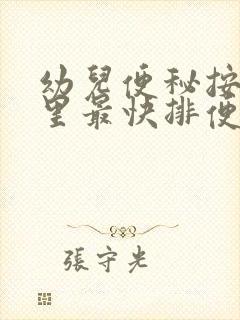 幼兒便秘按
里最快排便
張守光